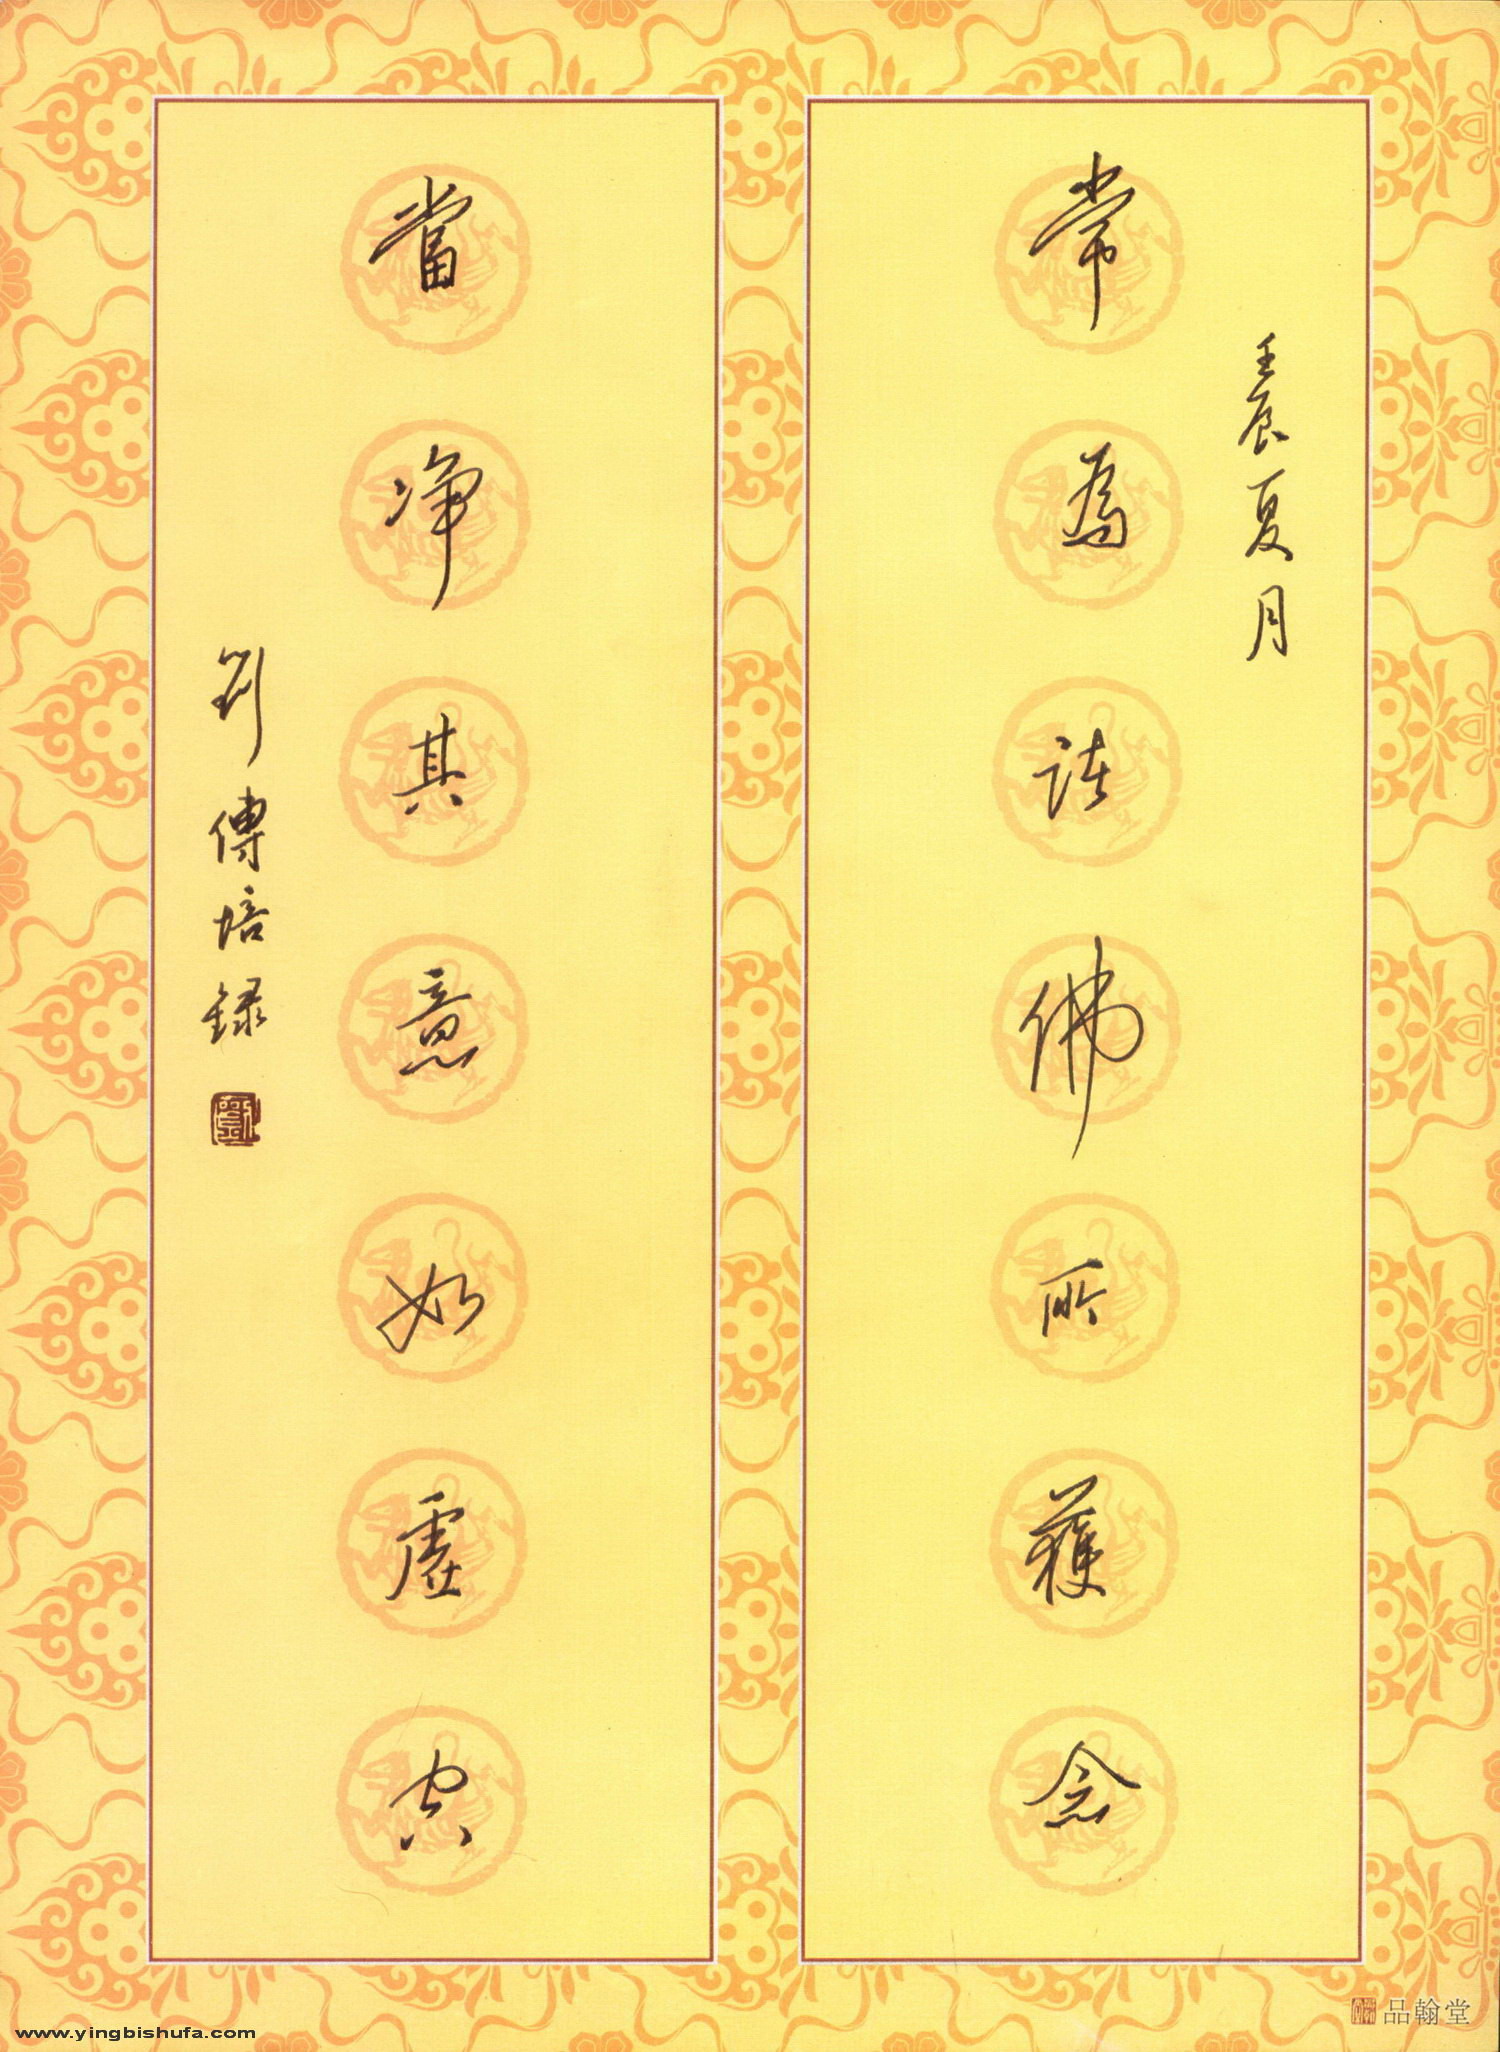 壬辰夏月
常為諸佛所護念
當净其意如虛空
劉傳培錄
品翰堂
www.yingbishufa.com